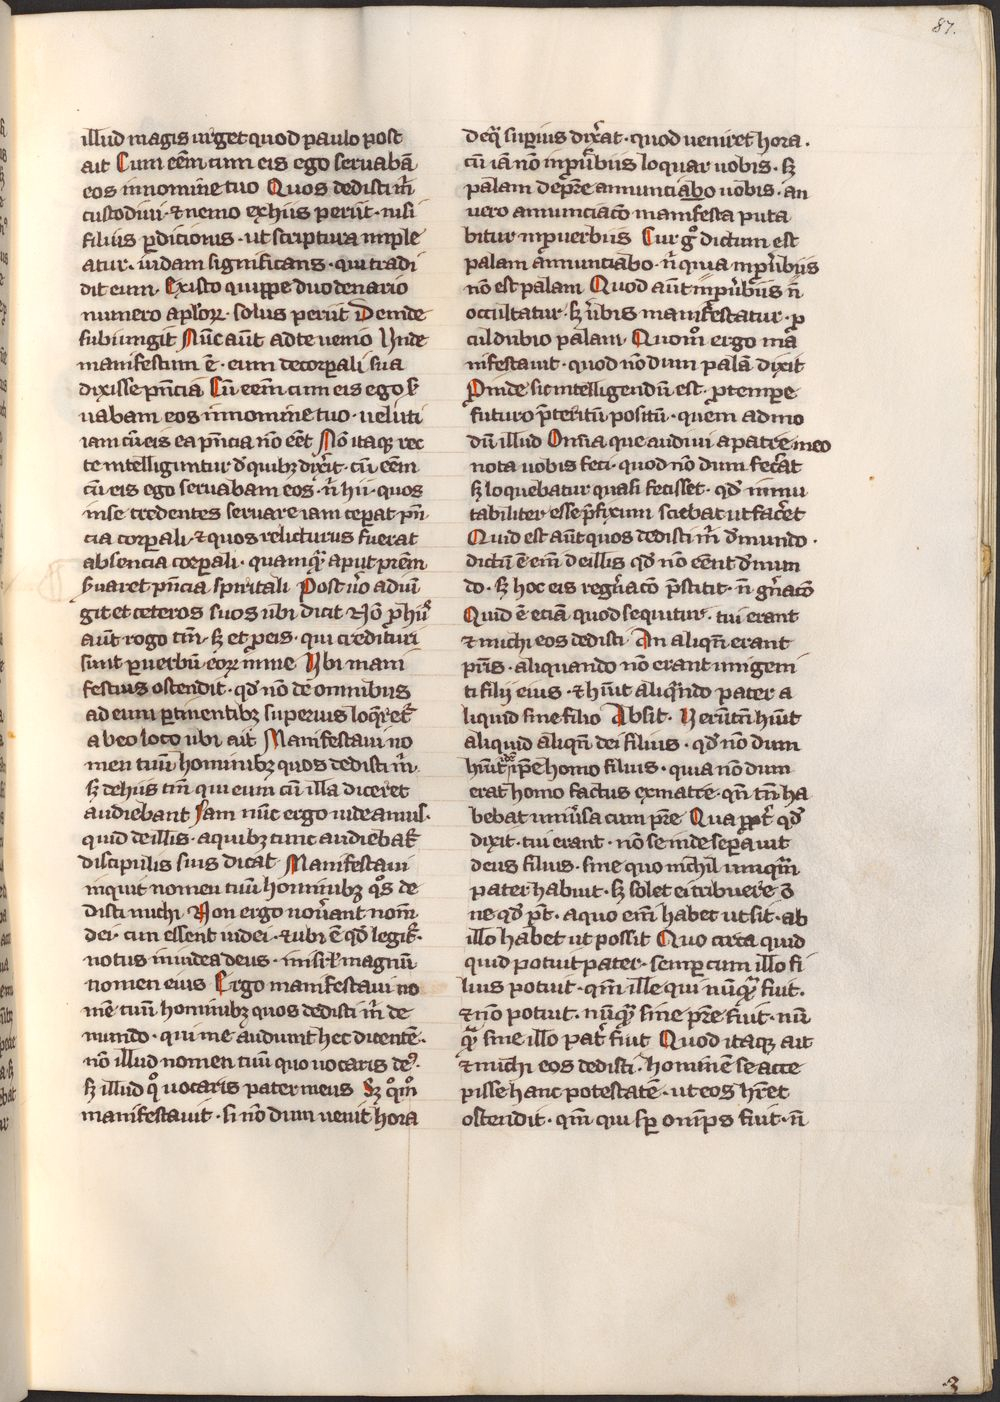 87.
illud magis urget quod paulo post
ait Cum eēm cum eis ego seruabā
eos in nomine tuo Quos dedisti m̄
custodiui · ⁊ nemo ex hiis periit · nisi
filius ꝑdicionis · ut scriptura imple
atur · iudam significans · qui tradi
dit eum · Existo quippe duodenario
numero apl'oꝝ · solus periit Deinde
subiungit Nūc aūt ad te uenio Unde
manifestum ē · eum de corꝑali sua
dixisse pn̄cia Cū eēm cum eis ego ẜ
uabam eos in nomine tuo · ueluti
iam cū eis ea pn̄cia nō eēt Nō itaqꝫ rec
te intelliguntur d' quibꝫ dix̄it · cū eēm
cū eis ego seruabam eos · n̄ hii · quos
in se credentes seruare iam ceperat pn̄
cia corꝑali · ⁊ quos relicturus fuerat
absencia corꝑali · quamqͣ aput prēm
ẜuaret pn̄cia spiritali Post u̅o adiū
git et ceteros suos ubi dicit Nō ꝓ hiis
aūt rogo tm̄ · sꝫ et ꝓ eis · qui credituri
sunt per uerbū eoꝝ in me Ubi mani
festius ostendit · qd' nō de omnibus
ad eum ꝑtinentibꝫ superius loq̄ret'
ab eo loco ubi ait Manifestaui no
men tuū hominibꝫ quos dedisti m̄
sꝫ de hiis tm̄ qui eum cū illa diceret
audiebant Jam nūc ergo uideamus ·
quid de illis · a quibꝫ tunc audiebat'
discipulis suis dicat Manifestaui
inquit nomen tuū hominibꝫ qͦs de
disti michi Non ergo nou̅ant nom̄
dei · cum essent iudei · ⁊ ubi ē qd' legit' ·
notus in iudea deus · in isrl' magnū
nomen eius Ergo manifestaui no
mē tuū hominibꝫ quos dedisti m̄ de
mundo · qui me audiunt hec dicentē ·
nō illud nomen tuū quo uocaris deꝰ ·
sꝫ illud qͦ uocaris pater meus Sꝫ qͦmͦ
manifestauit · si nō dum uenit hora
de qͣ suꝑius dix̄at · quod ueniret hora ·
cū iā nō in ꝓu̅biis loquar uobis · sꝫ
palam de pr̄e annunciabo uobis · an
uero annunciacō manifesta puta
bitur in ꝓuerbiis Cur gͦ dictum est
palam annunciabo · n̄ quia in ꝓu̅biis
nō est palam Quod aūt in ꝓu̅biis n̄
occultatur · sꝫ u̅bis manifestatur · ꝓ
cul dubio palam · Quomͦ ergo ma
nifestauit · quod nō dum palā dixit
Proinde sic intelligendū est · ꝓ tempore
futuro p̄teritū positū · quem ad mo
dū illud Om̄ia que audiui a patre meo
nota uobis feci · quod nō dum fec̄at
sꝫ loquebatur quasi fecisset · qd' inmu
tabiliter esse p̄fixum sciebat ut fac̄et
Quid est aūt quos dedisti m̄ d' mundo ·
dictū ē eī de illis qd' nō eēnt d' mun
do · sꝫ hoc eis regn̄acō p̄stitit · n̄ gn̄acō
Quid ē eciā quod sequitur · tui erant
⁊ michi eos dedisti An aliqn̄ erant
pr̄is · aliquando nō erant unigeni
ti filii eius · ⁊ hūit aliqn̄do pater a
liquid sine filio Absit · Uerūtn̄ hūit
aliquid aliqn̄ dei filius · qd' nō dum
hūit ip̄e homo filius · quia nō dum
erat homo factus ex matre · qn̄ tn̄ ha
bebat uniu̅sa cum pr̄e Qua ꝓpt̄ qd'
dixit · tui erant · nō se inde seꝑauit
deus filius · sine quo nichil unqͣm
pater habuit · sꝫ solet ei tribuere om̄
ne qd' pōt · a quo eīm habet ut sit · ab
illo habet ut possit Quo circa quid
quid potuit pater · semꝑ cum illo fi
lius potuit · qm̄ ille qui nūqͣ fuit ·
⁊ nō potuit · nūqͣ sine pr̄e fuit · nū
qͣ sine illo pat̄ fuit Quod itaqꝫ ait
⁊ michi eos dedisti · hominē se acce
pisse hanc potestatē · ut eos hr̄et
ostendit · qm̄ qui sꝑ om̄ps fuit · n̄